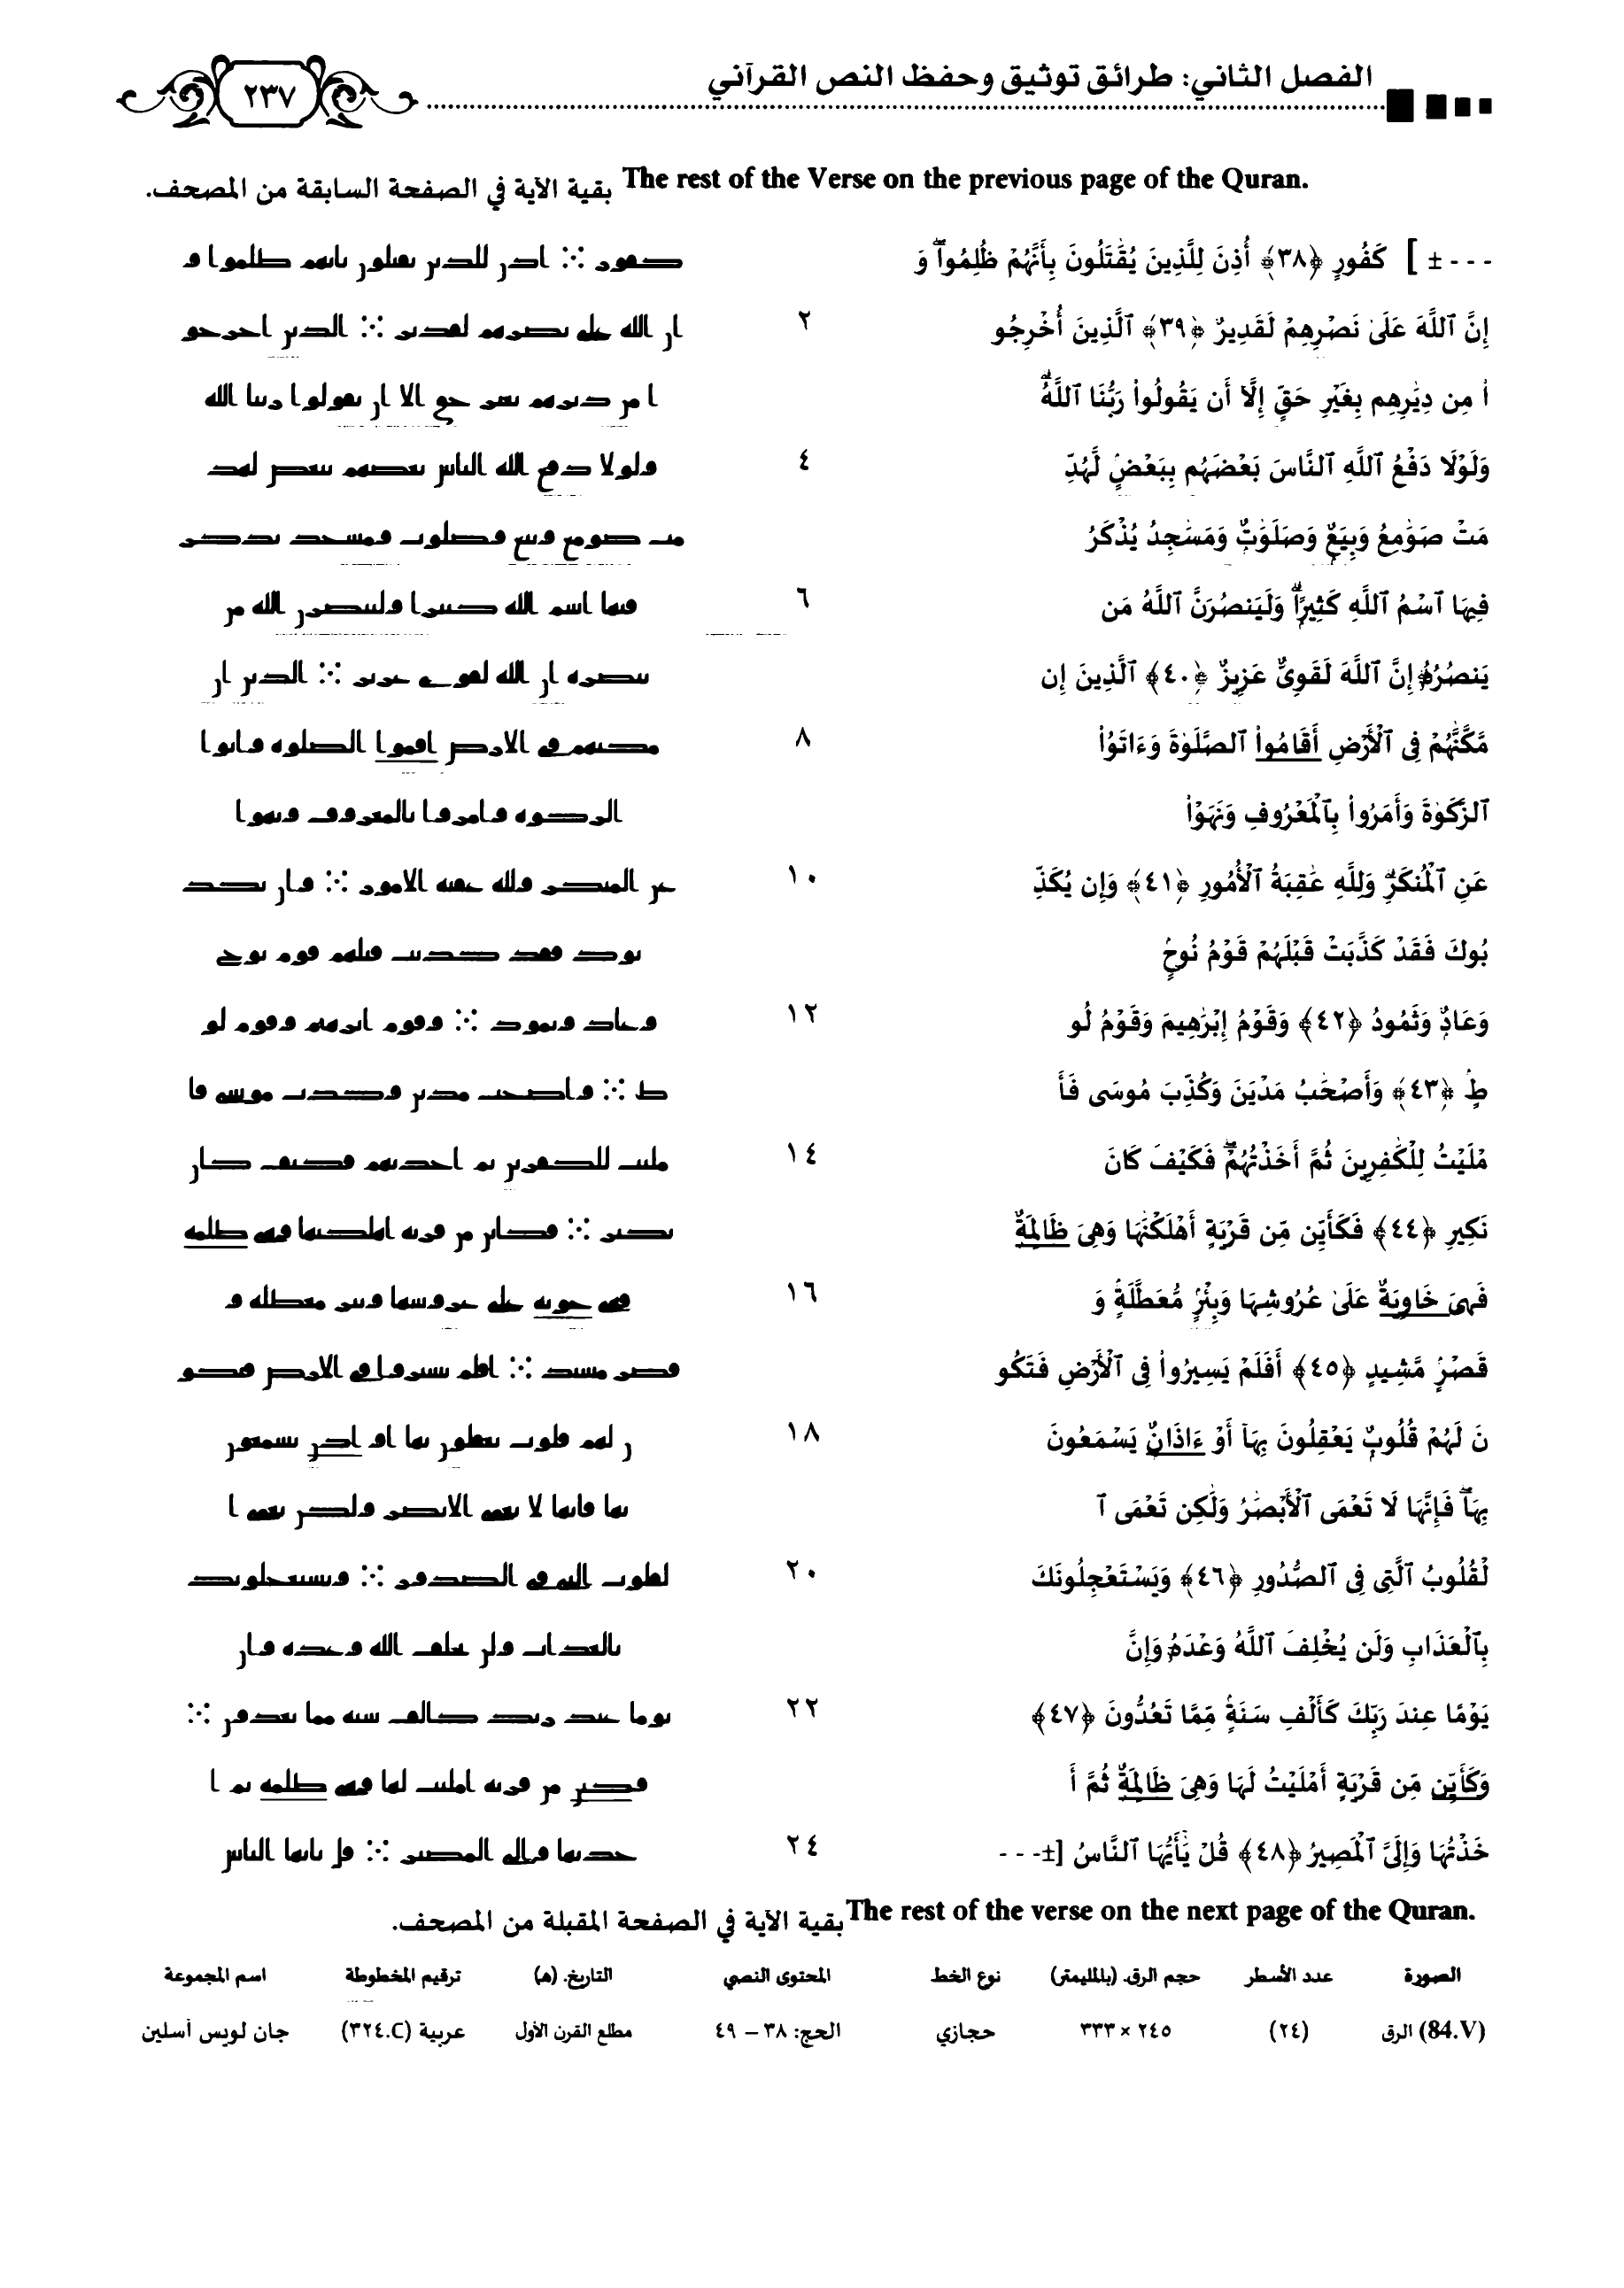 الفصل الثاني: طرائق توثيق وحفظ النص القرآني
٢٣٧
The rest of the Verse on the previous page of the Quran. بقية الآية في الصفحة السابقة من المصحف.
- - - ± ] كَفُورٍ ﴿٣٨﴾ أُذِنَ لِلَّذِينَ يُقَٰتَلُونَ بِأَنَّهُمْ ظُلِمُوا۟ۚ وَ كڡور ⁘ ادں للدٮں ٮڡٮلوں ٮاٮهم طلموا و
إِنَّ ٱللَّهَ عَلَىٰ نَصْرِهِمْ لَقَدِيرٌ ﴿٣٩﴾ ٱلَّذِينَ أُخْرِجُو ٢ اں الله على ٮصرهم لڡدٮر ⁘ الدٮں احرحو
ا۟ مِن دِيَٰرِهِم بِغَيْرِ حَقٍّ إِلَّآ أَن يَقُولُوا۟ رَبُّنَا ٱللَّهُۗ ا مں دٮرهم ٮعٮر حٯ الا اں ٮڡولوا رٮٮا الله
وَلَوْلَا دَفْعُ ٱللَّهِ ٱلنَّاسَ بَعْضَهُم بِبَعْضٍۢ لَّهُدِّ ٤ ولولا دڡع الله الٮاس ٮعصهم ٮٮعص لهد
مَتْ صَوَٰمِعُ وَبِيَعٌ وَصَلَوَٰتٌ وَمَسَٰجِدُ يُذْكَرُ مٮ صومع وٮٮع وصلوٮ ومسحد ٮدكر
فِيهَا ٱسْمُ ٱللَّهِ كَثِيرًاۗ وَلَيَنصُرَنَّ ٱللَّهُ مَن ٦ ڡٮها اسم الله كٮٮرا ولٮٮصرں الله مں
يَنصُرُهُۥٓ إِنَّ ٱللَّهَ لَقَوِىٌّ عَزِيزٌ ﴿٤٠﴾ ٱلَّذِينَ إِن ٮٮصره اں الله لڡوى عرٮر ⁘ الدٮں اں
مَّكَّنَّٰهُمْ فِى ٱلْأَرْضِ أَقَامُوا۟ ٱلصَّلَوٰةَ وَءَاتَوُا۟ ٨ مكٮهم ڡى الارص اڡموا الصلوه واٮوا
ٱلزَّكَوٰةَ وَأَمَرُوا۟ بِٱلْمَعْرُوفِ وَنَهَوْا۟ الركوه وامروا ٮالمعروڡ وٮهوا
عَنِ ٱلْمُنكَرِۗ وَلِلَّهِ عَٰقِبَةُ ٱلْأُمُورِ ﴿٤١﴾ وَإِن يُكَذِّ ١٠ عں المٮكر ولله عڡٮه الامور ⁘ واں ٮكد
بُوكَ فَقَدْ كَذَّبَتْ قَبْلَهُمْ قَوْمُ نُوحٍۢ ٮوك ڡڡد كدٮٮ ڡٮلهم ڡوم ٮوح
وَعَادٌ وَثَمُودُ ﴿٤٢﴾ وَقَوْمُ إِبْرَٰهِيمَ وَقَوْمُ لُو ١٢ وعاد وٮمود ⁘ وڡوم اٮرهٮم وڡوم لو
طٍۢ ﴿٤٣﴾ وَأَصْحَٰبُ مَدْيَنَ وَكُذِّبَ مُوسَى فَأَ ط ⁘ واصحٮ مدٮں وكدٮ موسى ڡا
مْلَيْتُ لِلْكَٰفِرِينَ ثُمَّ أَخَذْتُهُمْۖ فَكَيْفَ كَانَ ١٤ ملٮٮ للكڡرٮں ٮم احدٮهم ڡكٮڡ كاں
نَكِيرِ ﴿٤٤﴾ فَكَأَيِّن مِّن قَرْيَةٍ أَهْلَكْنَٰهَا وَهِىَ ظَالِمَةٌ ٮكٮر ⁘ ڡكاٮں مں ڡرٮه اهلكٮها وهى طلمه
فَهِىَ خَاوِيَةٌ عَلَىٰ عُرُوشِهَا وَبِئْرٍۢ مُّعَطَّلَةٍۢ وَ ١٦ ڡهى حوٮه على عروسها وٮٮر معطله و
قَصْرٍۢ مَّشِيدٍ ﴿٤٥﴾ أَفَلَمْ يَسِيرُوا۟ فِى ٱلْأَرْضِ فَتَكُو ڡصر مسٮد ⁘ اڡلم ٮسٮروا ڡى الارص ڡٮكو
نَ لَهُمْ قُلُوبٌ يَعْقِلُونَ بِهَآ أَوْ ءَاذَانٌ يَسْمَعُونَ ١٨ ں لهم ڡلوٮ ٮعڡلوں ٮها او ادں ٮسمعوں
بِهَاۖ فَإِنَّهَا لَا تَعْمَى ٱلْأَبْصَٰرُ وَلَٰكِن تَعْمَى ٱ ٮها ڡاٮها لا ٮعمى الاٮصر ولكں ٮعمى ا
لْقُلُوبُ ٱلَّتِى فِى ٱلصُّدُورِ ﴿٤٦﴾ وَيَسْتَعْجِلُونَكَ ٢٠ لڡلوٮ الٮى ڡى الصدور ⁘ وٮسٮعحلوٮك
بِٱلْعَذَابِ وَلَن يُخْلِفَ ٱللَّهُ وَعْدَهُۥ وَإِنَّ ٮالعداٮ ولں ٮحلڡ الله وعده واں
يَوْمًا عِندَ رَبِّكَ كَأَلْفِ سَنَةٍۢ مِّمَّا تَعُدُّونَ ﴿٤٧﴾ ٢٢ ٮوما عٮد رٮك كالڡ سٮه مما ٮعدوں ⁘
وَكَأَيِّن مِّن قَرْيَةٍ أَمْلَيْتُ لَهَا وَهِىَ ظَالِمَةٌ ثُمَّ أَ وكٮں مں ڡرٮه املٮٮ لها وهى طلمه ٮم ا
خَذْتُهَا وَإِلَىَّ ٱلْمَصِيرُ ﴿٤٨﴾ قُلْ يَٰٓأَيُّهَا ٱلنَّاسُ [±- - - ٢٤ حدٮها والى المصٮر ⁘ ڡل ٮاٮها الٮاس
The rest of the verse on the next page of the Quran. بقية الآية في الصفحة المقبلة من المصحف.
الصورة عدد الأسطر حجم الرق. (بالمليمتر) نوع الخط المحتوى النصي التاريخ. (هـ) ترقيم المخطوطة اسم المجموعة
(84.V) الرق (٢٤) ٢٤٥ × ٣٣٣ حجازي الحج: ٣٨ – ٤٩ مطلع القرن الأول عربية (٣٢٤.C) جان لويس أسلين